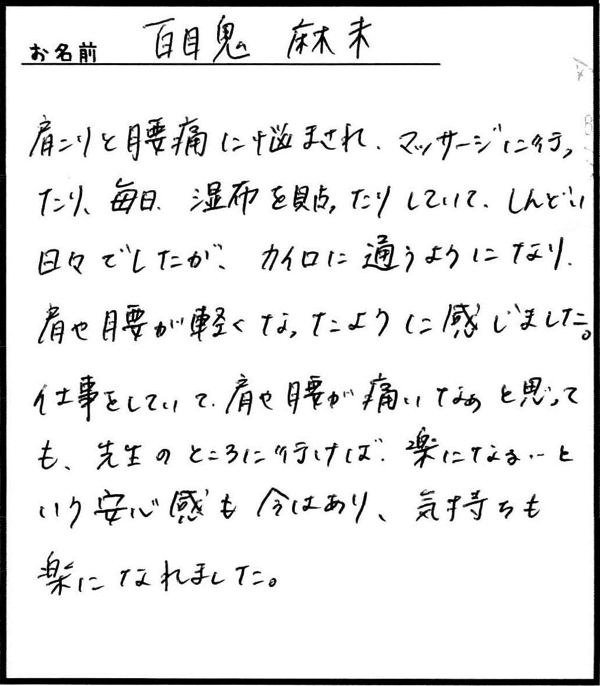 お名前 百目鬼 麻未
肩こりと腰痛に悩まされ、マッサージに行っ
たり、毎日、湿布を貼ったりしていて、しんどい
日々でしたが、カイロに通うようになり、
肩や腰が軽くなったように感じました。
仕事をしていて、肩や腰が痛いなぁと思って
も、先生のところに行けば、楽になる…と
いう安心感も今はあり、気持ちも
楽になれました。